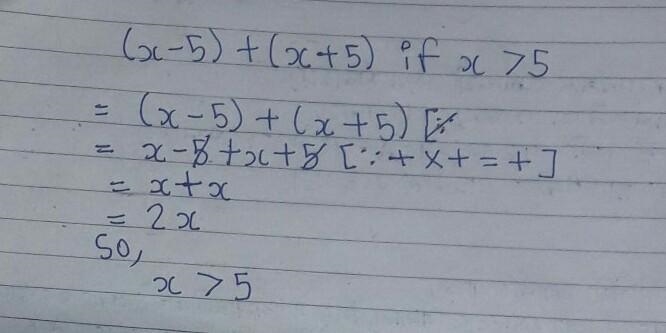 (x-5) + (x+5) if x > 5
= (x-5) + (x+5) [∵
= x-5+x+5 [∵ + × + = +]
= x+x
= 2x
So,
x > 5